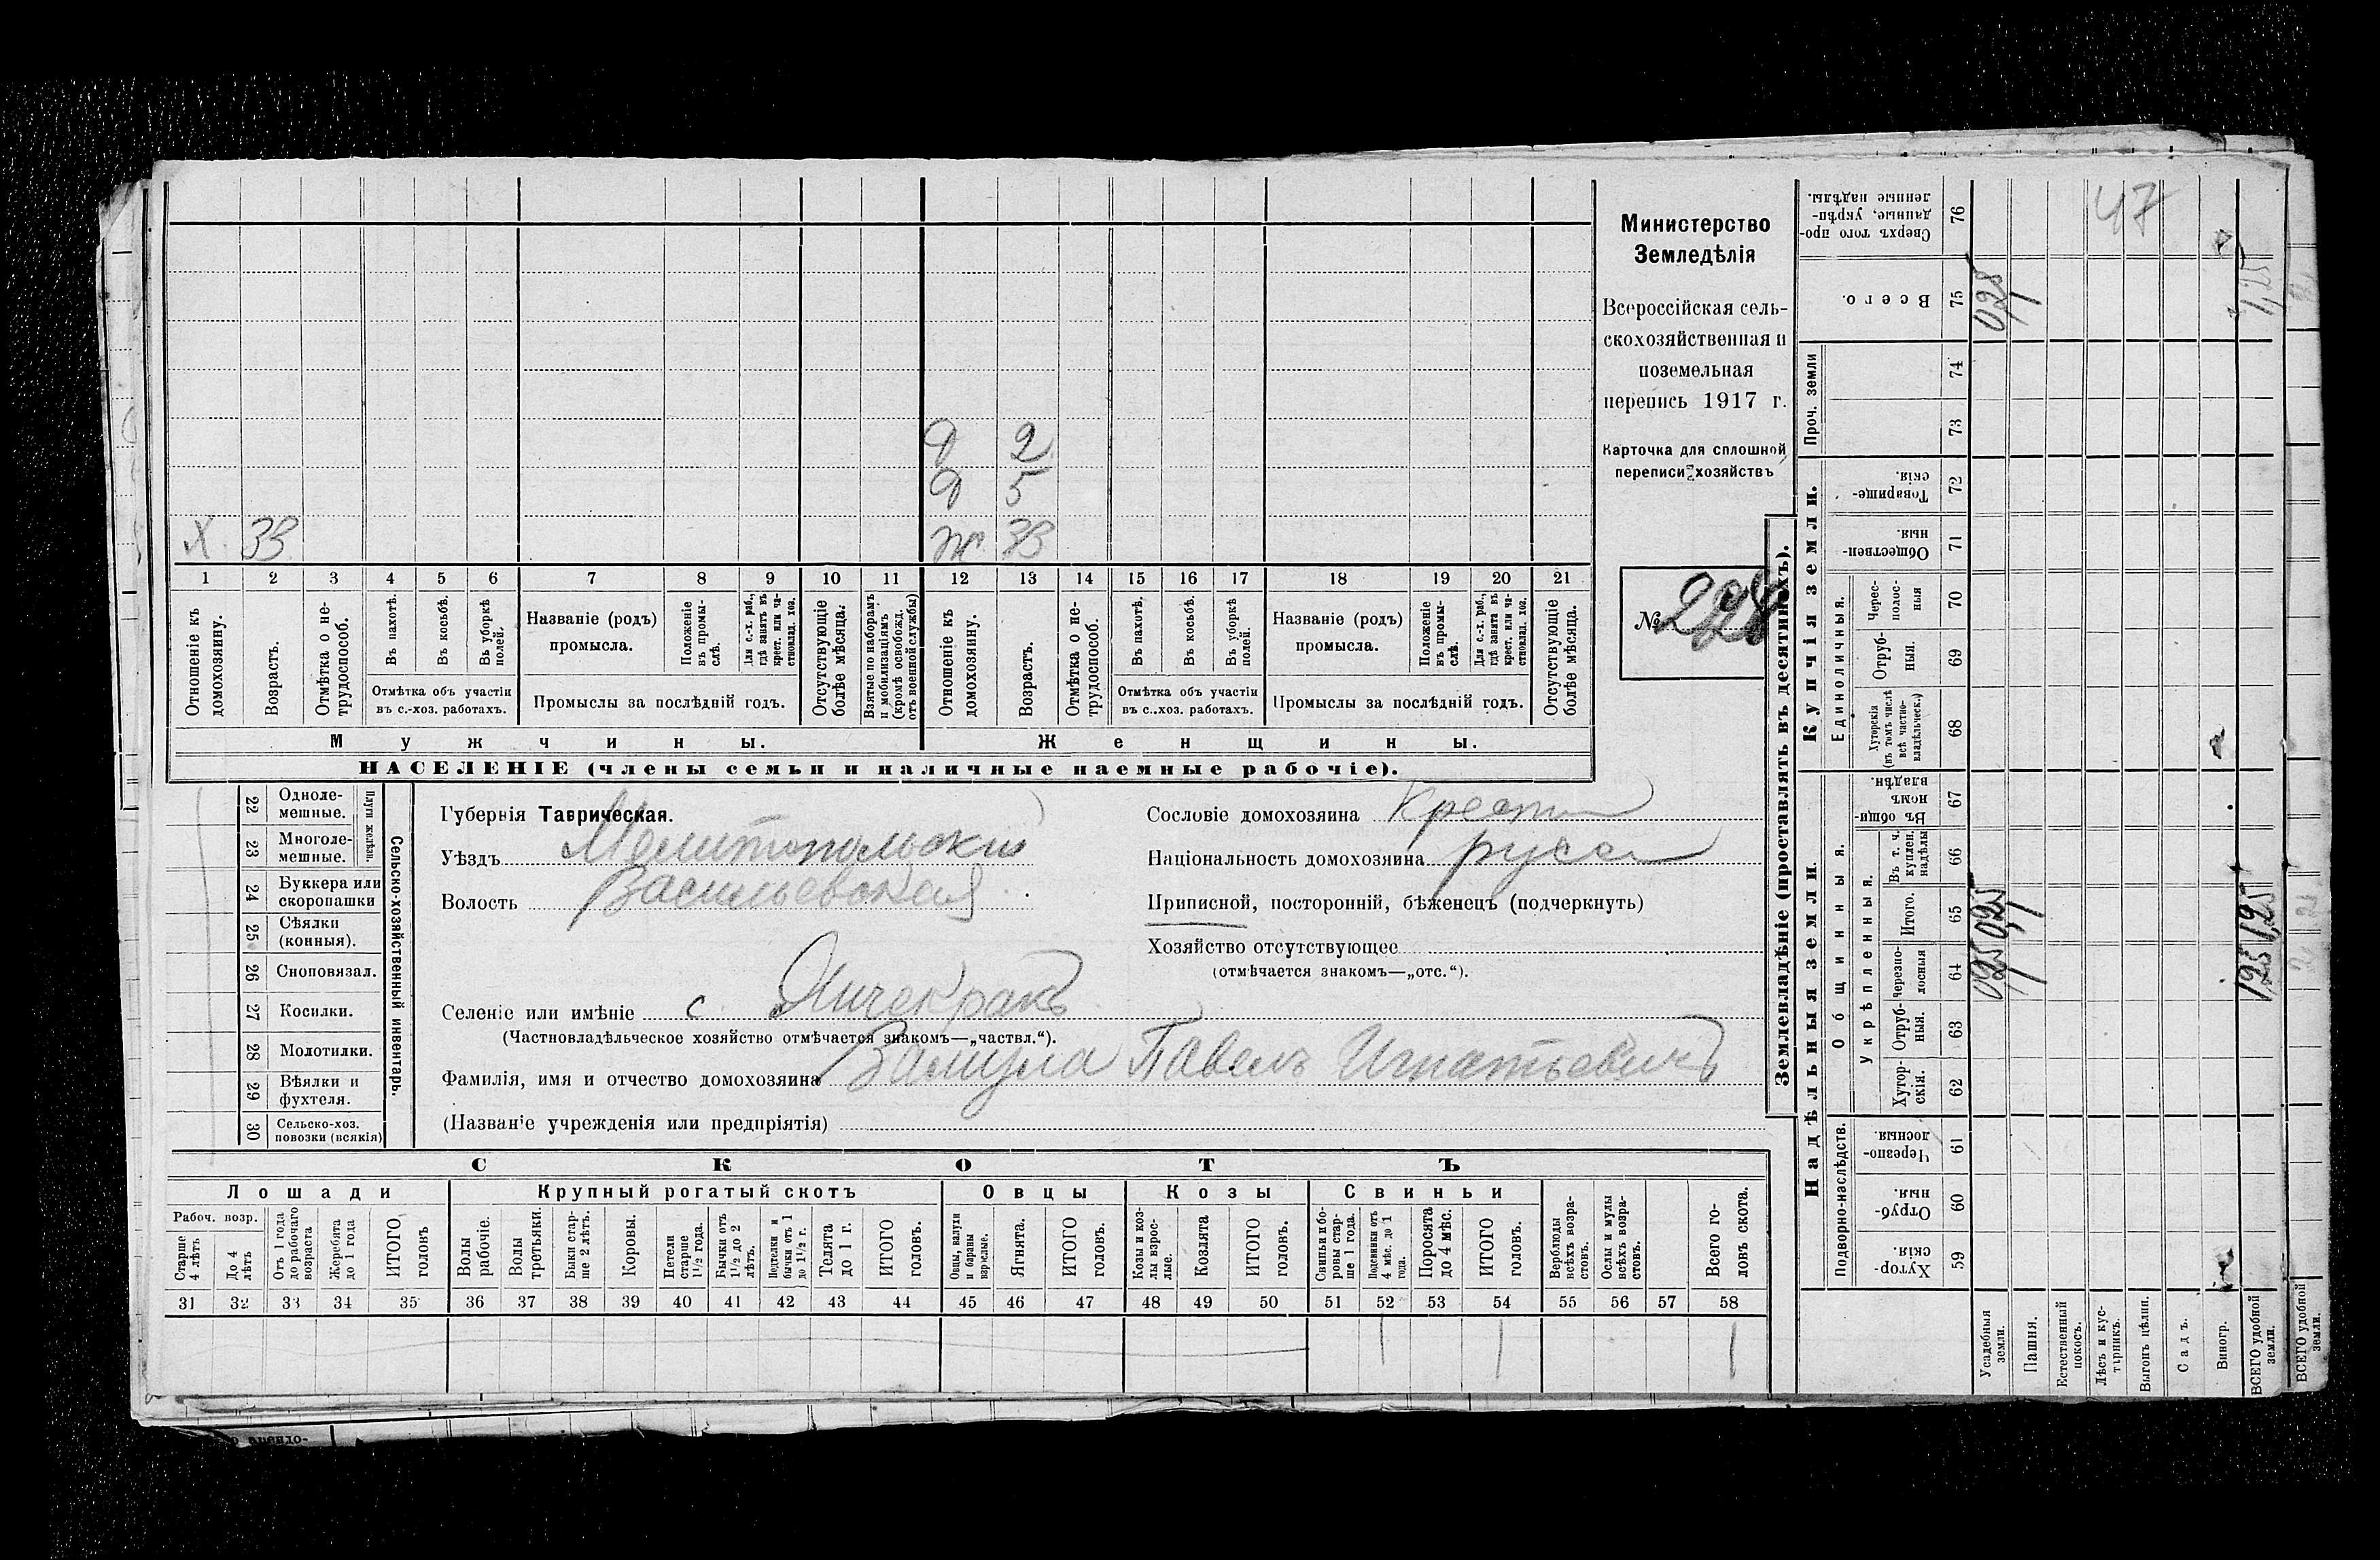 Министерство
Земледѣлія
Всероссійская сель-
скохозяйственная и
поземельная
перепись 1917 г.
Карточка для сплошной
переписи хозяйствъ
№ 228
Д 2
Д 5
Х. 33 Ж 33
1 2 3 4 5 6 7 8 9 10 11 12 13 14 15 16 17 18 19 20 21
Отношеніе къ домохозяину.
Возрастъ.
Отмѣтка о не-трудоспособ.
Въ пахотѣ.
Въ косьбѣ.
Въ уборкѣ полей.
Отмѣтка объ участіи въ с.-хоз. работахъ.
Названіе (родъ) промысла.
Положеніе въ промы-слѣ.
Для с.-х. раб., гдѣ занятъ въ крест. или ча-стновлад. хоз.
Промыслы за послѣдній годъ.
Отсутствующіе болѣе мѣсяца.
Взятые по наборамъ и мобилизаціямъ (кромѣ освобожд. отъ военной службы)
Отношеніе къ домохозяину.
Возрастъ.
Отмѣтка о не-трудоспособ.
Въ пахотѣ.
Въ косьбѣ.
Въ уборкѣ полей.
Отмѣтка объ участіи въ с..хоз. работахъ.
Названіе (родъ) промысла.
Положеніе въ промы-слѣ.
Для с.-х. раб., гдѣ занята въ крест. или ча-стновлад. хоз.
Промыслы за послѣдній годъ.
Отсутствующіе болѣе мѣсяца.
Мужчины. Женщины.
НАСЕЛЕНІЕ (члены семьи и наличные наемные рабочіе).
22 Одноле-мешные.
23 Многоле-мешные.
Плуги желѣзн.
24 Буккера или скоропашки
25 Сѣялки (конныя).
26 Сноповязал.
27 Косилки.
28 Молотилки.
29 Вѣялки и фухтеля.
30 Сельско-хоз. повозки (всякія)
Сельско-хозяйственный инвентарь.
Губернія Таврическая.
Уѣздъ Мелитопольскій
Волость Васильевская
Селеніе или имѣніе с. Янчекракъ
(Частновладѣльческое хозяйство отмѣчается знакомъ—„частвл.“).
Фамилія, имя и отчество домохозяина Вакула Павелъ Игнатьевичъ
(Названіе учрежденія или предпріятія)
Сословіе домохозяина Крест
Національность домохозяина русск
Приписной, посторонній, бѣженецъ (подчеркнуть)
Хозяйство отсутствующее
(отмѣчается знакомъ—„отс.“).
СКОТЪ
Лошади Крупный рогатый скотъ Овцы Козы Свиньи
Рабоч. возр.
Старше 4 лѣтъ
До 4 лѣтъ
Отъ 1 года до рабочаго возраста
Жеребята до 1 года
ИТОГО головъ
Волы рабочіе.
Волы третьяки.
Быки стар-ше 2 лѣтъ.
Коровы.
Нетели старше 1½ года.
Бычки отъ 1½ до 2 лѣтъ.
Подтелки и бычки отъ 1 до 1½ г.
Телята до 1 г.
ИТОГО головъ.
Овцы, валухи и бараны взрослые.
Ягнята.
ИТОГО головъ.
Козы и коз-лы взрос-лые.
Козлята
ИТОГО головъ.
Свиньи и бо-ровы стар-ше 1 года.
Подсвинки отъ 4 мѣс. до 1 года.
Поросята до 4 мѣс.
ИТОГО головъ.
Верблюды всѣхъ возра-стовъ.
Ослы и мулы всѣхъ возра-стовъ.
Всего го-ловъ скота.
31 32 33 34 35 36 37 38 39 40 41 42 43 44 45 46 47 48 49 50 51 52 53 54 55 56 57 58
1 1 1
Землевладѣніе (проставлять въ десятинахъ).
Купчія земли.
Надѣльныя земли.
Проч. земли
Единоличныя.
Общинныя.
Укрѣпленныя.
Подворно-наслѣдств.
Сверхъ того про-данные, укрѣп-ленные надѣлы. 76
Всего. 75
74
73
Товарище-скія. 72
Обществен-ныя. 71
Черес-полос-ныя 70
Отруб-ныя. 69
Хуторскія (въ томъ числѣ всѣ частно-владѣльческ.) 68
Въ общин-номъ владѣн. 67
Въ т. ч. куплен. надѣлы 66
Итого. 65
Черезпо-лосныя 64
Отруб-ныя. 63
Хутор-скія. 62
Черезпо-лосныя. 61
Отруб-ныя. 60
Хутор-скія. 59
Усадебныя земли. 0,25 0,25 0,25
Пашня.
Естественный покосъ.
Лѣсъ и кус-тарникъ.
Выгонъ цѣлин.
Садъ.
Виногр.
ВСЕГО удобной земли. 1,25 1,25 1,25
ВСЕГО удобной земли.
47